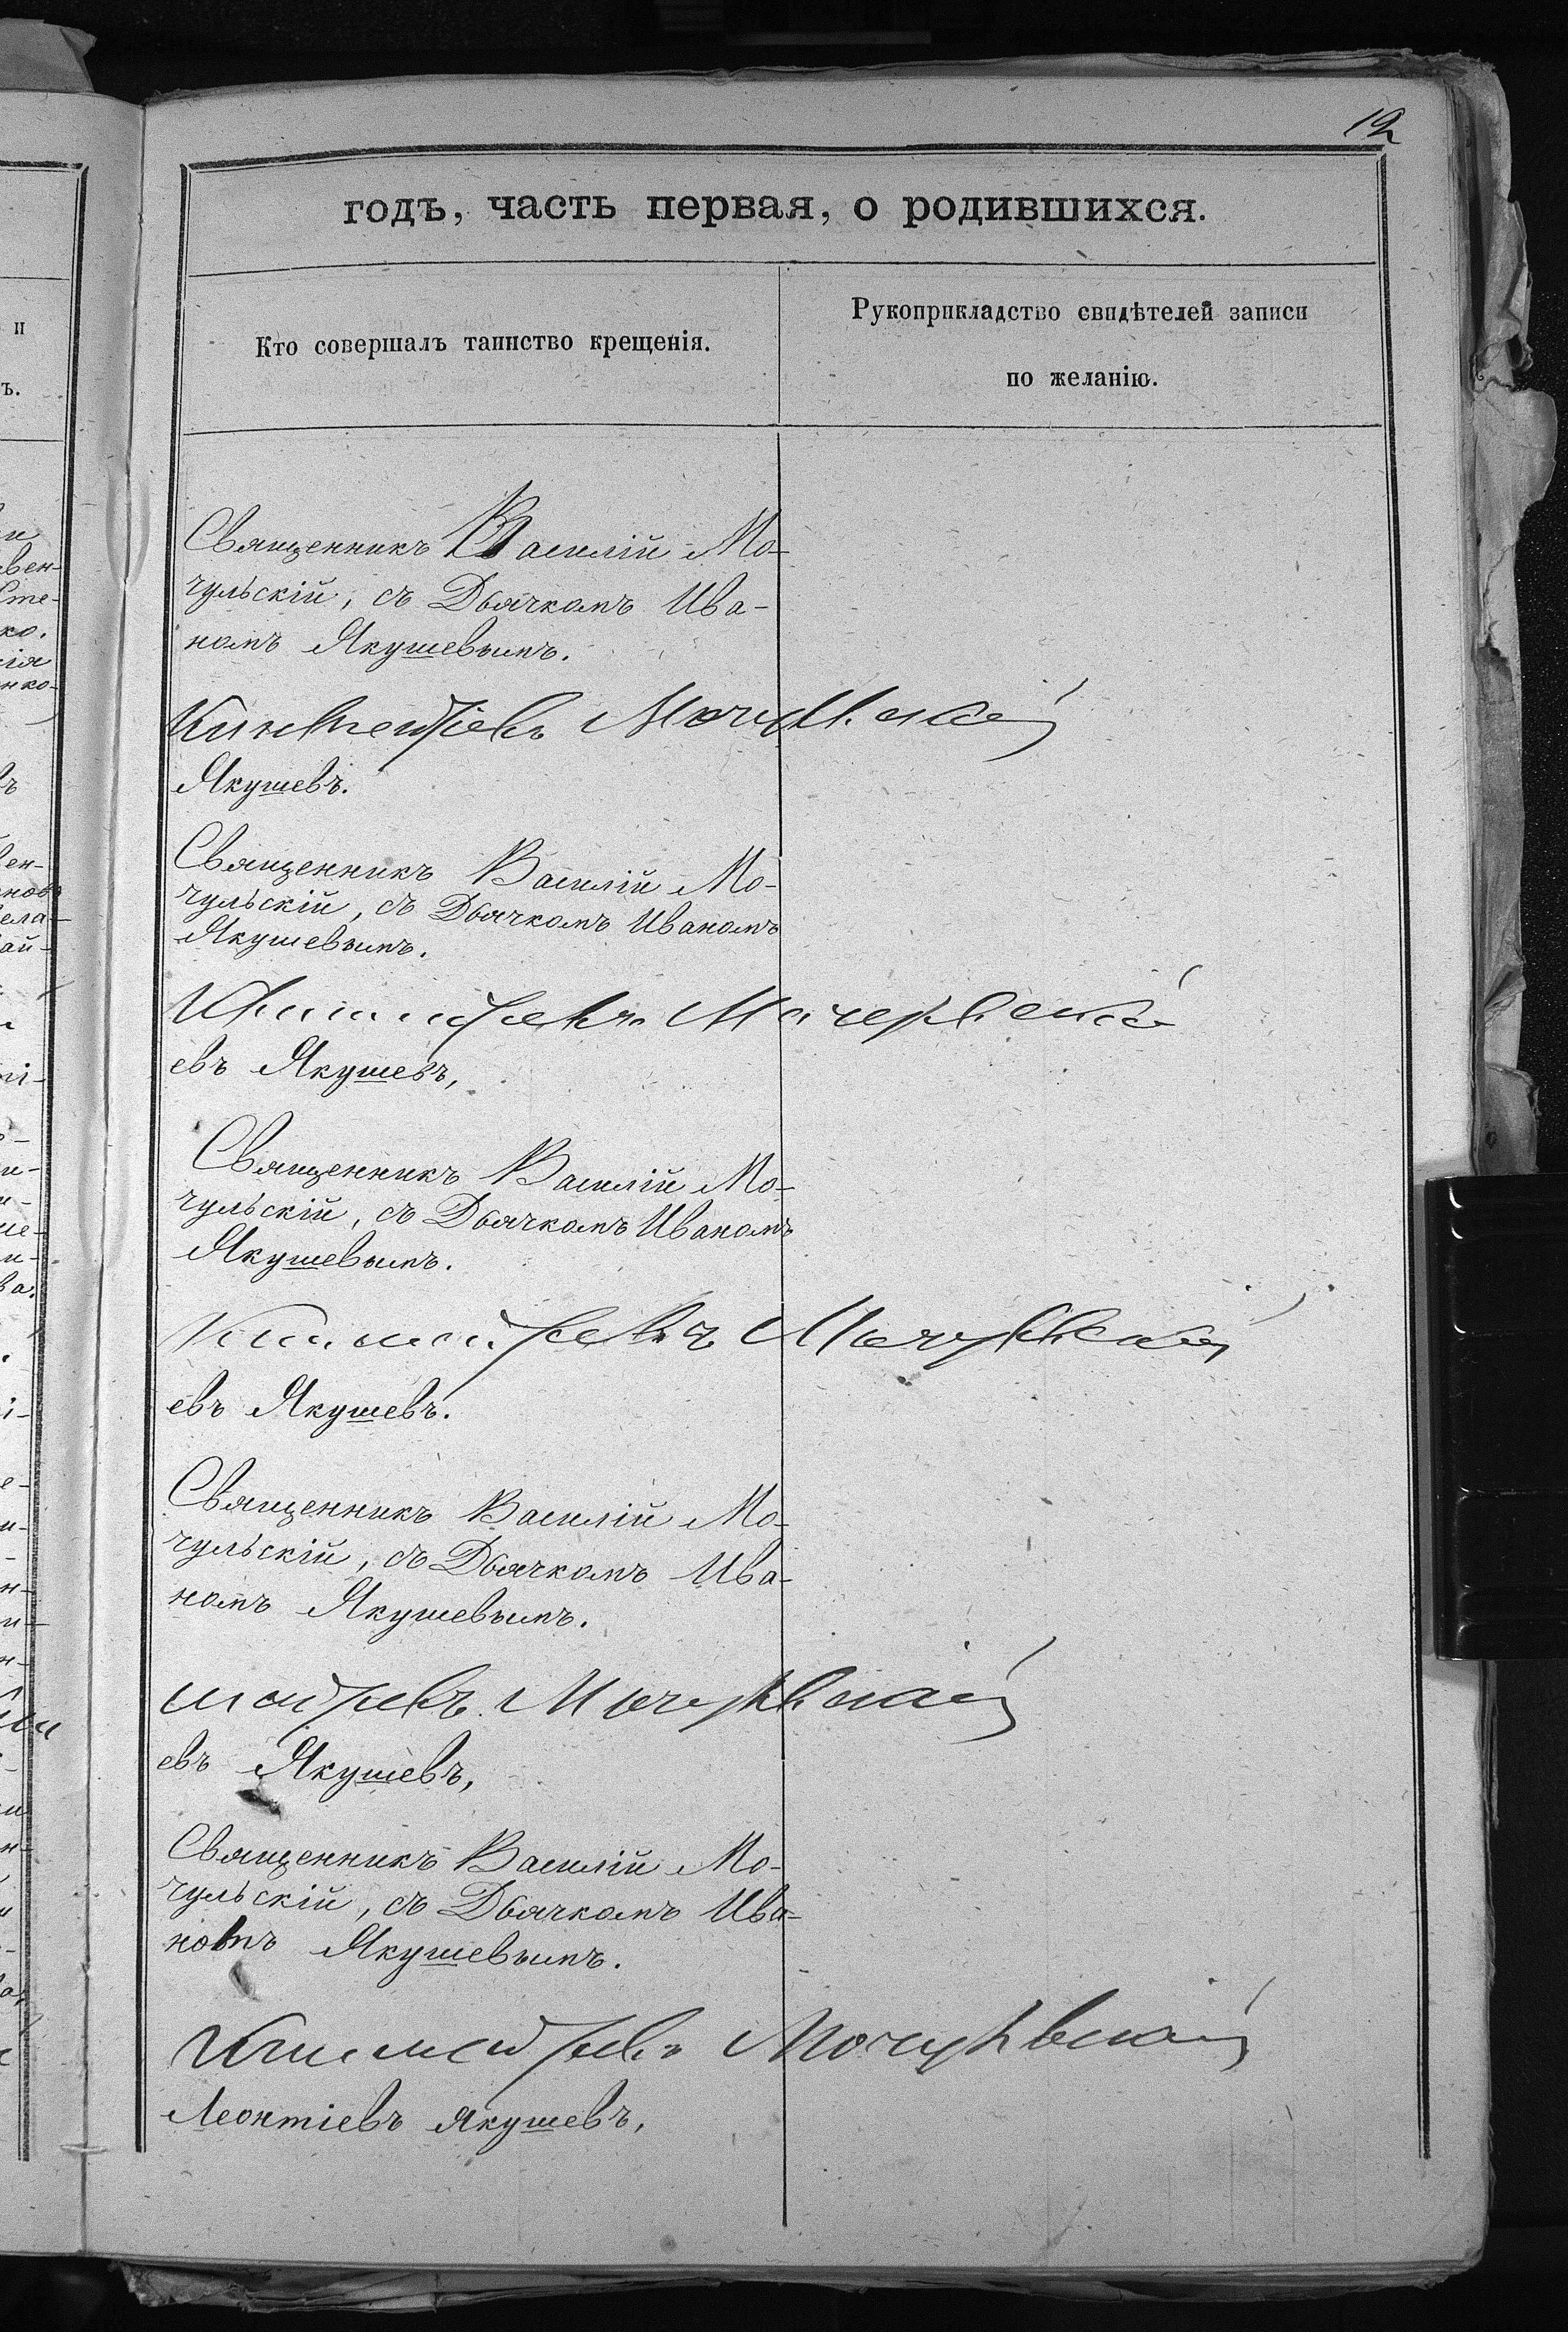 19
годъ, часть первая, о родившихся.
Кто совершалъ таинство крещенія.
Рукоприкладство свидѣтелей записи
по желанію.
Священникъ Василій Мо-
чульскій, съ Дьячкомъ Ива-
номъ Якушевымъ.
Мочульскій
Якушевъ.
Священникъ Василій Мо-
чульскій, съ Дьячкомъ Иваномъ
Якушевымъ.
Мочульскій
евъ Якушевъ,
Священникъ Василій Мо-
чульскій, съ Дьячкомъ Иваномъ
Якушевымъ.
Мочульскій
евъ Якушевъ.
Священникъ Василій Мо-
чульскій, съ Дьячкомъ Ива-
номъ Якушевымъ.
Мочульскій
евъ Якушевъ,
Священникъ Василій Мо-
чульскій, съ Дьячкомъ Ива-
номъ Якушевымъ.
Мочульскій
Леонтіевъ Якушевъ,